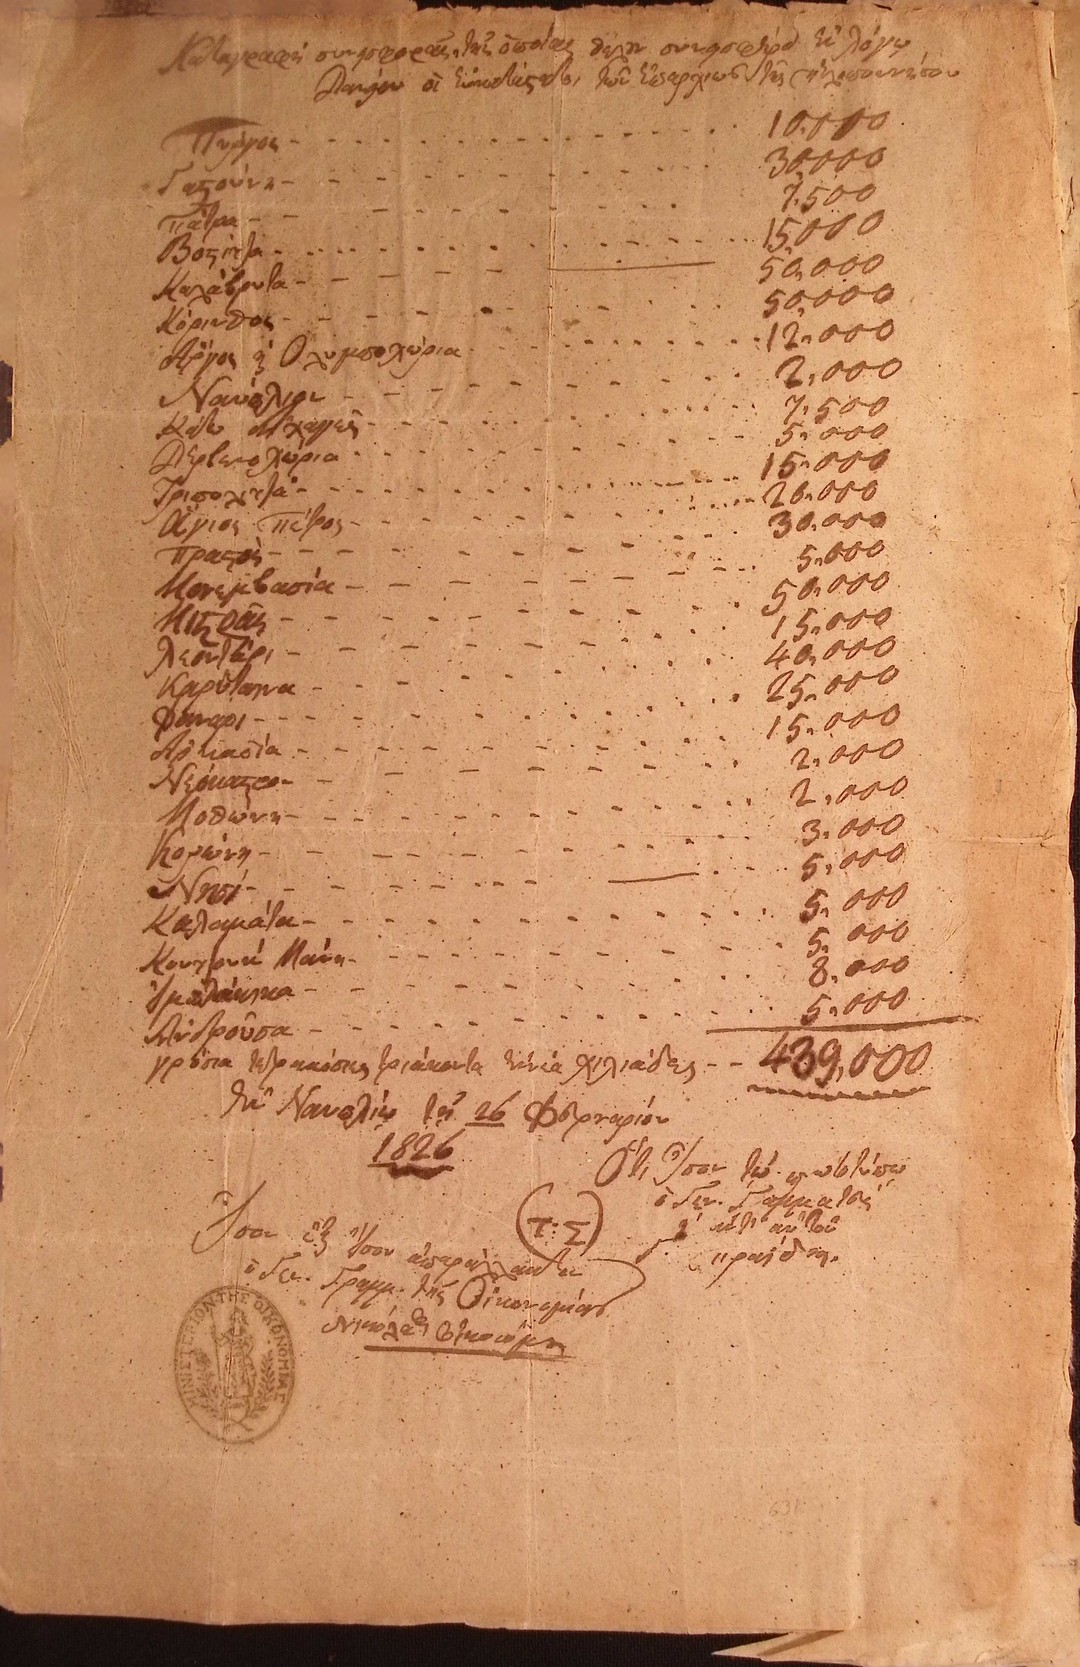 Καταγραφὴ συνεισφορᾶς, τῆς ὁποίας θέλει συνεισφέρει ἐν λόγῳ
Δανείου οἱ τῶν Ἐπαρχιῶν τῆς Πελοποννήσου
Πύργος - - - 10.000
Γαστούνη - - - 30,000
Πάτρα - - - 7,500
Βοστίτζα - - - 15,000
Καλάβρυτα - - - 50,000
Κόρινθος - - - 50,000
Ἄργος ἢ Ὀλυμποχώρια - - - 12,000
Ναύπλιον - - - 2,000
Κάτω Ναχαγιὲς - - - 7,500
Δερβενοχώρια - - - 5,000
Τριπολιτζὰ - - - 15,000
Ἅγιος Πέτρος - - - 20,000
Πραστὸς - - - 30,000
Μονεμβασία - - - 5,000
Μιστρᾶς - - - 50,000
Λεοντάρι - - - 15,000
Καρύταινα - - - 40,000
Φανάρι - - - 25,000
Ἀρκαδία - - - 15,000
Νεόκαστρο - - - 2,000
Μοθώνη - - - 2,000
Κορώνη - - - 3,000
Νησὶ - - - 5,000
Καλαμάτα - - - 5,000
Μάνη - - - 5,000
Ἐμπλάκικα - - - 8,000
Ἀνδροῦσα - - - 5,000
γρόσια τετρακόσιες τριάκοντα ἐννέα χιλιάδες - - 439,000
Ἐν Ναυπλίῳ τῇ 26 Φεβρουαρίου
1826
Ὅτι ἴσον τῷ πρωτοτύπῳ
ὁ Γεν. Γραμματεὺς
(Τ. Σ)
Ἴσον ἐξ ἴσου ἀπαράλλακτον
ὁ Γεν. Γραμμ. τῆς Οἰκονομίας
Νικόλαος
ΜΙΝΙΣΤΕΡΙΟΝ ΤΗΣ ΟΙΚΟΝΟΜΙΑΣ
631